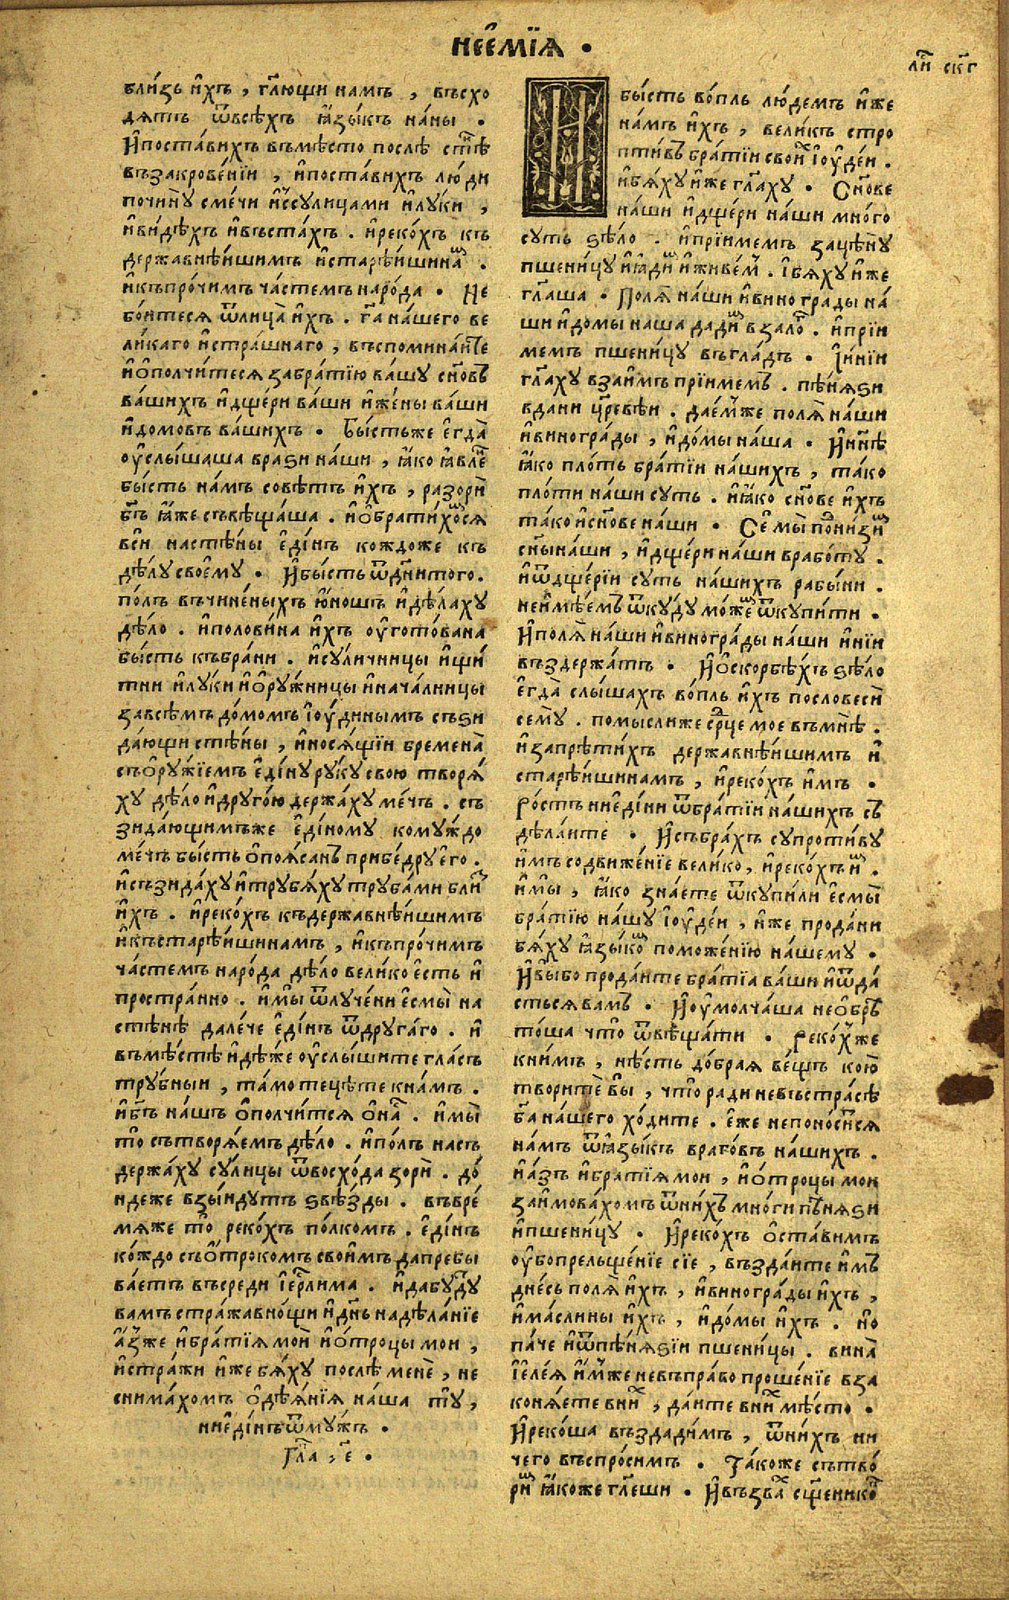 нее҆мїѧ •
ли҃ ск҃г
бли́зь и҆́хъ , гл҃ющи намъ , въсхо
дѧтъ ѿвсѣ́хъ ꙗ҆зы́къ на́ны •
И҆поста́вихъ въмѣ́сто послѣ стѣ́
въ закрове́нїи , и҆поста́вихъ лю́ди
почи́ну сме́чи и҆ссули́цами и҆лу́ки ,
и҆ви́дѣхъ и҆въста́хъ . и҆реко́хъ къ
держа́внѣишимъ и҆старѣ́ишина .
и҆къпро́чимъ ча́стемъ наро́да • Не
бо́итесѧ ѿлица̀ и҆́хъ . га҃ на́шего ве
ли́каго и҆стра́шнаго , въспомина́ите
и҆ѡ҆полчи́тесѧ забра́тїю ва́шу сн҃овъ
ва́шихъ и҆дще́ри ва́ши и҆жены ва́ши
и҆домовъ ва́шихъ • Бы́стьже є҆гда̀
ѹ҆слы́шаша вразѝ на́ши , ꙗ҆́ко ꙗ҆вле́
бы́сть на́мъ совѣ́тъ и҆́хъ , разорѝ
бг҃ъ ꙗ҆́же съвѣща́ша . и҆ѡ҆брати́хосѧ
всѝ настѣ́ны є҆ди́нъ кождоже къ
дѣ́лу своемꙋ • И҆бы́сть ѿдн҃итого .
по́лъ въчине́ныхъ ю҆́ношъ и҆дѣ́лаху
дѣ́ло . и҆полови́на и҆́хъ ѹ҆гото́вана
бы́сть къбра́ни . и҆су́личницы и҆щи́
тни и҆лу́ки и҆ѻ҆ру́жницы и҆нача́лницы
завсѣ́мъ до́момъ і҆ѹ́динымъ съзи
да́ющи стѣ́ны , и҆носѧ́щїи бремена̀
съѻ҆ру́жїемъ є҆ди́ну ру́ку свою творѧ́
ху дѣ́ло и҆друго́ю держа́ху ме́чъ . съ
зида́ющимъже є҆ди́ному кому́ждо
ме́чъ бы́сть ѻ҆поѧ́санъ прибе́дру є҆го .
и҆съзида́ху и҆трубѧ́ху труба́ми бли́
и҆́хъ . и҆реко́хъ къдержа́внѣишимъ
и҆къстарѣ́ишинамъ , и҆къпро́чимъ
ча́стемъ наро́да дѣ́ло вели́ко є҆сть и҆
простра́нно . и҆мы̀ ѿлуче́ни є҆смы̀ на
стѣнѣ̀ дале́че є҆ди́нъ ѿдруга́го . и҆
въмѣ́стѣ и҆дѣ́же ѹ҆слы́шите гла́съ
тру́бныи , та́мо теце́те кна́мъ .
и҆бг҃ъ нашъ ѻ҆полчи́тсѧ ѻ҆на . и҆мы̀
то̀ сътворѧ́емъ дѣ́ло . и҆по́лъ насъ
держа́ху су́лицы ѿвосхо́да зорѝ . до́
ндеже взы́идутъ ѕвѣ́зды . въвре́
мѧже то̀ реко́хъ по́лкомъ . є҆ди́нъ
ко́ждо съѻ҆́трокомъ свои́мъ дапребы
ва́етъ въсреди і҆ерл҃има . и҆дабу́ду
вамъ стра́жа внощи и҆дн҃ь надѣ́ланїе
а҆́зже и҆бра́тїѧ моѝ и҆ѻ҆́троцы мои ,
и҆стра́жи и҆́же бѧ́ху послѣ́ менѐ , не
снима́хомъ ѻ҆дѣѧ́нїѧ на́ша ту ,
ние҆ди́нъ ѿму́жъ •
Гла҃ , є҃ •
И бы́сть во́пль лю́демъ и҆́же
на́мъ и҆́хъ , вели́къ стро
пти́въ бра́тїи свои і҆ѹде́и .
и҆бѧ́ху и҆́же гл҃аху • Сн҃ове
на́ши и҆дще́ри на́ши мно́го
су́ть ѕѣ́ло . и҆прїи́мемъ зацѣ́ну
пшени́цу и҆ꙗ҆ди и҆живе́м . І҆бѧ́ху и҆́же
гл҃аша • Полѧ̀ на́ши и҆виногра́ды на́
ши и҆до́мы наша дади́ взало́ . и҆прїи́
мемъ пшени́цу въгла́дъ • І҆и҆нїи
гл҃аху взаи́мъ прїи́мемъ . пѣ́нѧзи
вдани цр҃евѣи . дае́мже полѧ̀ на́ши
и҆виногра́ды , и҆до́мы на́ша • И҆нн҃ѣ
ꙗ҆́ко пло́ть бра́тїи на́шихъ , та́ко
пло́ти на́ши су́ть . и҆ꙗ҆́ко сн҃ове и҆́хъ
та́ко и҆сн҃ове на́ши • Се мы̀ пони́зи
сн҃ы на́ши , и҆дще́ри на́ши врабо́ту .
и҆ѿдще́рїи су́ть на́шихъ рабы́ни .
неи҆мѣ́емъ ѿку́ду мо́же ѿкупи́ти •
И҆полѧ̀ на́ши и҆виногра́ды на́ши и҆нїи
въздержа́тъ • И҆ѻ҆скорбѣ́хъ ѕѣло
є҆гда̀ слы́шахъ во́пль и҆́хъ посло́весѝ
сему . помы́слиже ср҃це мое въмнѣ̀ .
и҆запрѣти́хъ держа́внѣишимъ и҆
старѣ́ишинамъ , и҆реко́хъ и҆мъ •
Ро́стъ ние҆ди́ни ѿбра́тїи на́шихъ съ
дѣ́лаите • И҆събра́хъ супроти́ву
и҆́мъ содвиже́нїе вели́ко , и҆реко́хъ и .
и҆мы̀ , ꙗ҆́ко зна́ете ѿкупи́ли є҆смы̀
бра́тїю на́шу і҆ѹде́и , и҆́же прода́ни
бѧ́ху ꙗ҆зы́ко поможе́нїю на́шему •
И҆вы́бо прода́ите бра́тїа ва́ши и҆ѿда́
стьсѧ ва́мъ • И҆ѹ҆молча́ша неѻ҆брѣ
то́ша что̀ ѿвѣща́ти • Реко́хже
кни́мъ , нѣ́сть до́браѧ ве́щь кою̀
творитѐ вы̀ , что̀ ради невъстра́сѣ
бг҃а на́шего хо́дите . є҆́же непоно́ситсѧ
на́мъ ѿꙗ҆зы́къ враго́въ на́шихъ .
И҆а́зъ и҆бра́тїѧ мои , и҆ѻ҆́троцы мои
заи́мовахомъ ѿни́хъ мно́ги пѣ́нѧзи
и҆пшени́цу • И҆реко́хъ ѻ҆ста́вимъ
ѹ҆́бопрельще́нїе сїе , възда́ите и҆мъ
дне́сь полѧ̀ и҆́хъ , и҆виногра́ды и҆́хъ ,
и҆ма́слины и҆́хъ , и҆до́мы и҆́хъ . но
па́че и҆ѿпѣ́нѧзїи пшени́цы . вина̀
и҆еле́ѧ и҆́мже невъпра́во проше́нїе вза
конѧ́ете вни , да́ите вни мѣ́сто •
И҆реко́ша възда́димъ , ѿни́хъ ни
чего въспро́симъ • Та́коже сътво́
ри ꙗ҆́коже гл҃еши • И҆възва сщ҃енико